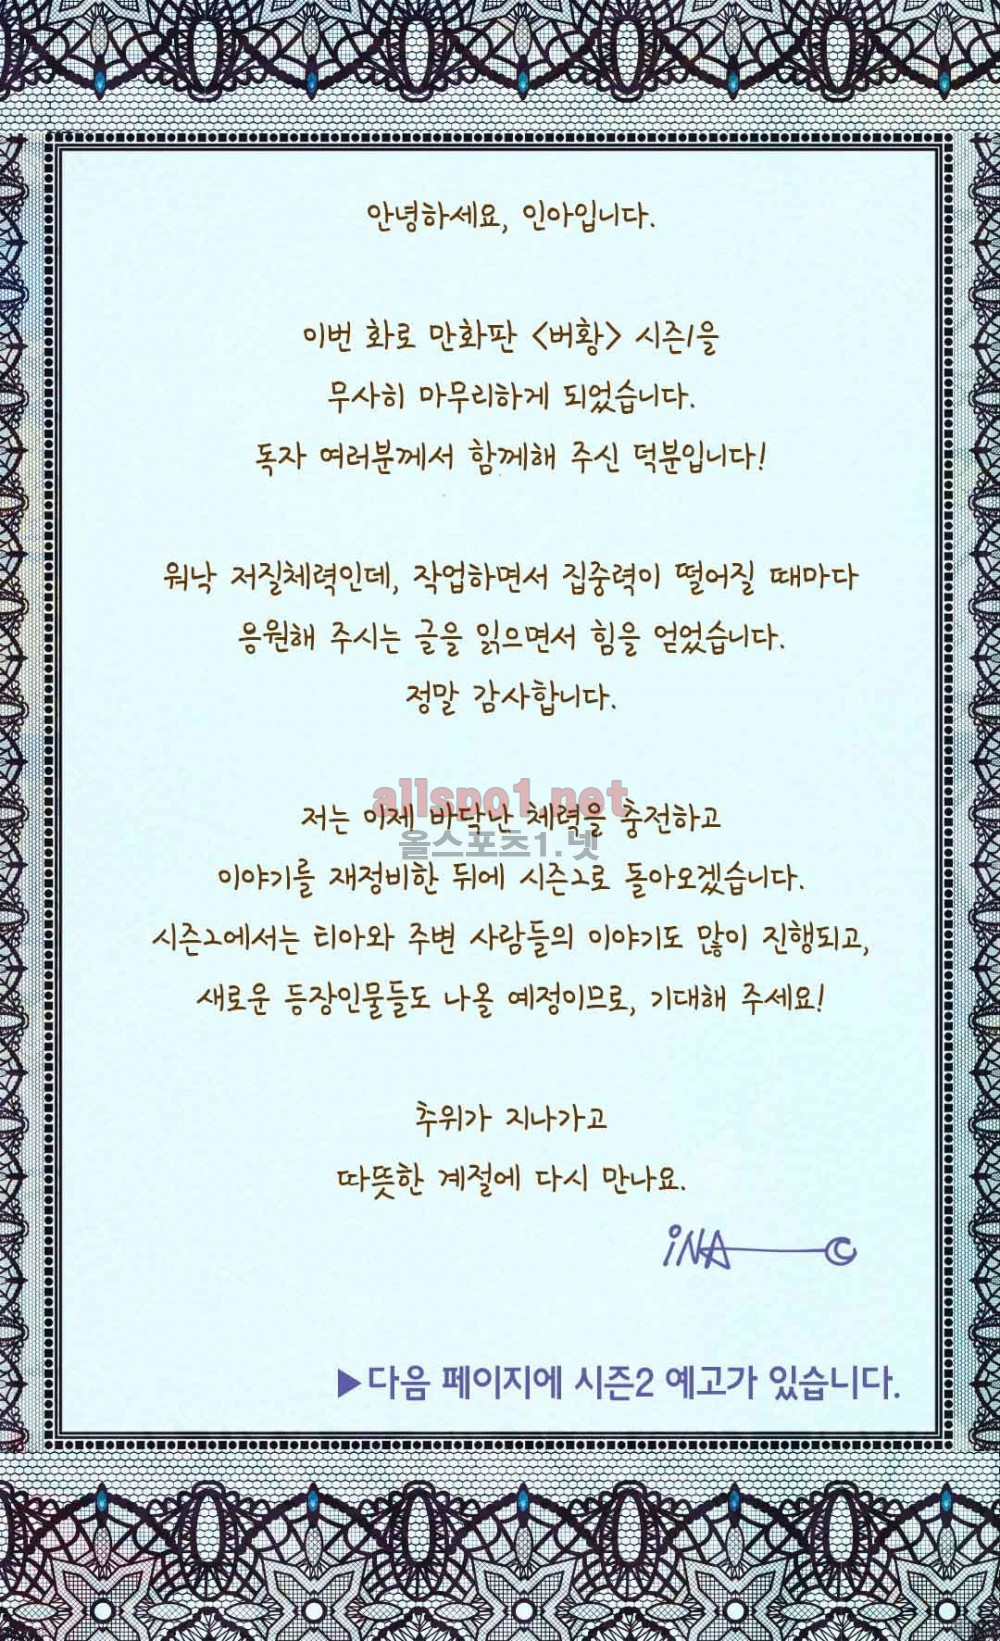 안녕하세요, 인아입니다.
이번 화로 만화판 <버황> 시즌1을
무사히 마무리하게 되었습니다.
독자 여러분께서 함께해 주신 덕분입니다!
워낙 저질체력인데, 작업하면서 집중력이 떨어질 때마다
응원해 주시는 글을 읽으면서 힘을 얻었습니다.
정말 감사합니다.
allspo1.net
저는 이제 바닥난 체력을 충전하고
올스포츠1.넷
이야기를 재정비한 뒤에 시즌2로 돌아오겠습니다.
시즌2에서는 티아와 주변 사람들의 이야기도 많이 진행되고,
새로운 등장인물들도 나올 예정이므로, 기대해 주세요!
추위가 지나가고
따뜻한 계절에 다시 만나요.
iNA
▶다음 페이지에 시즌2 예고가 있습니다.